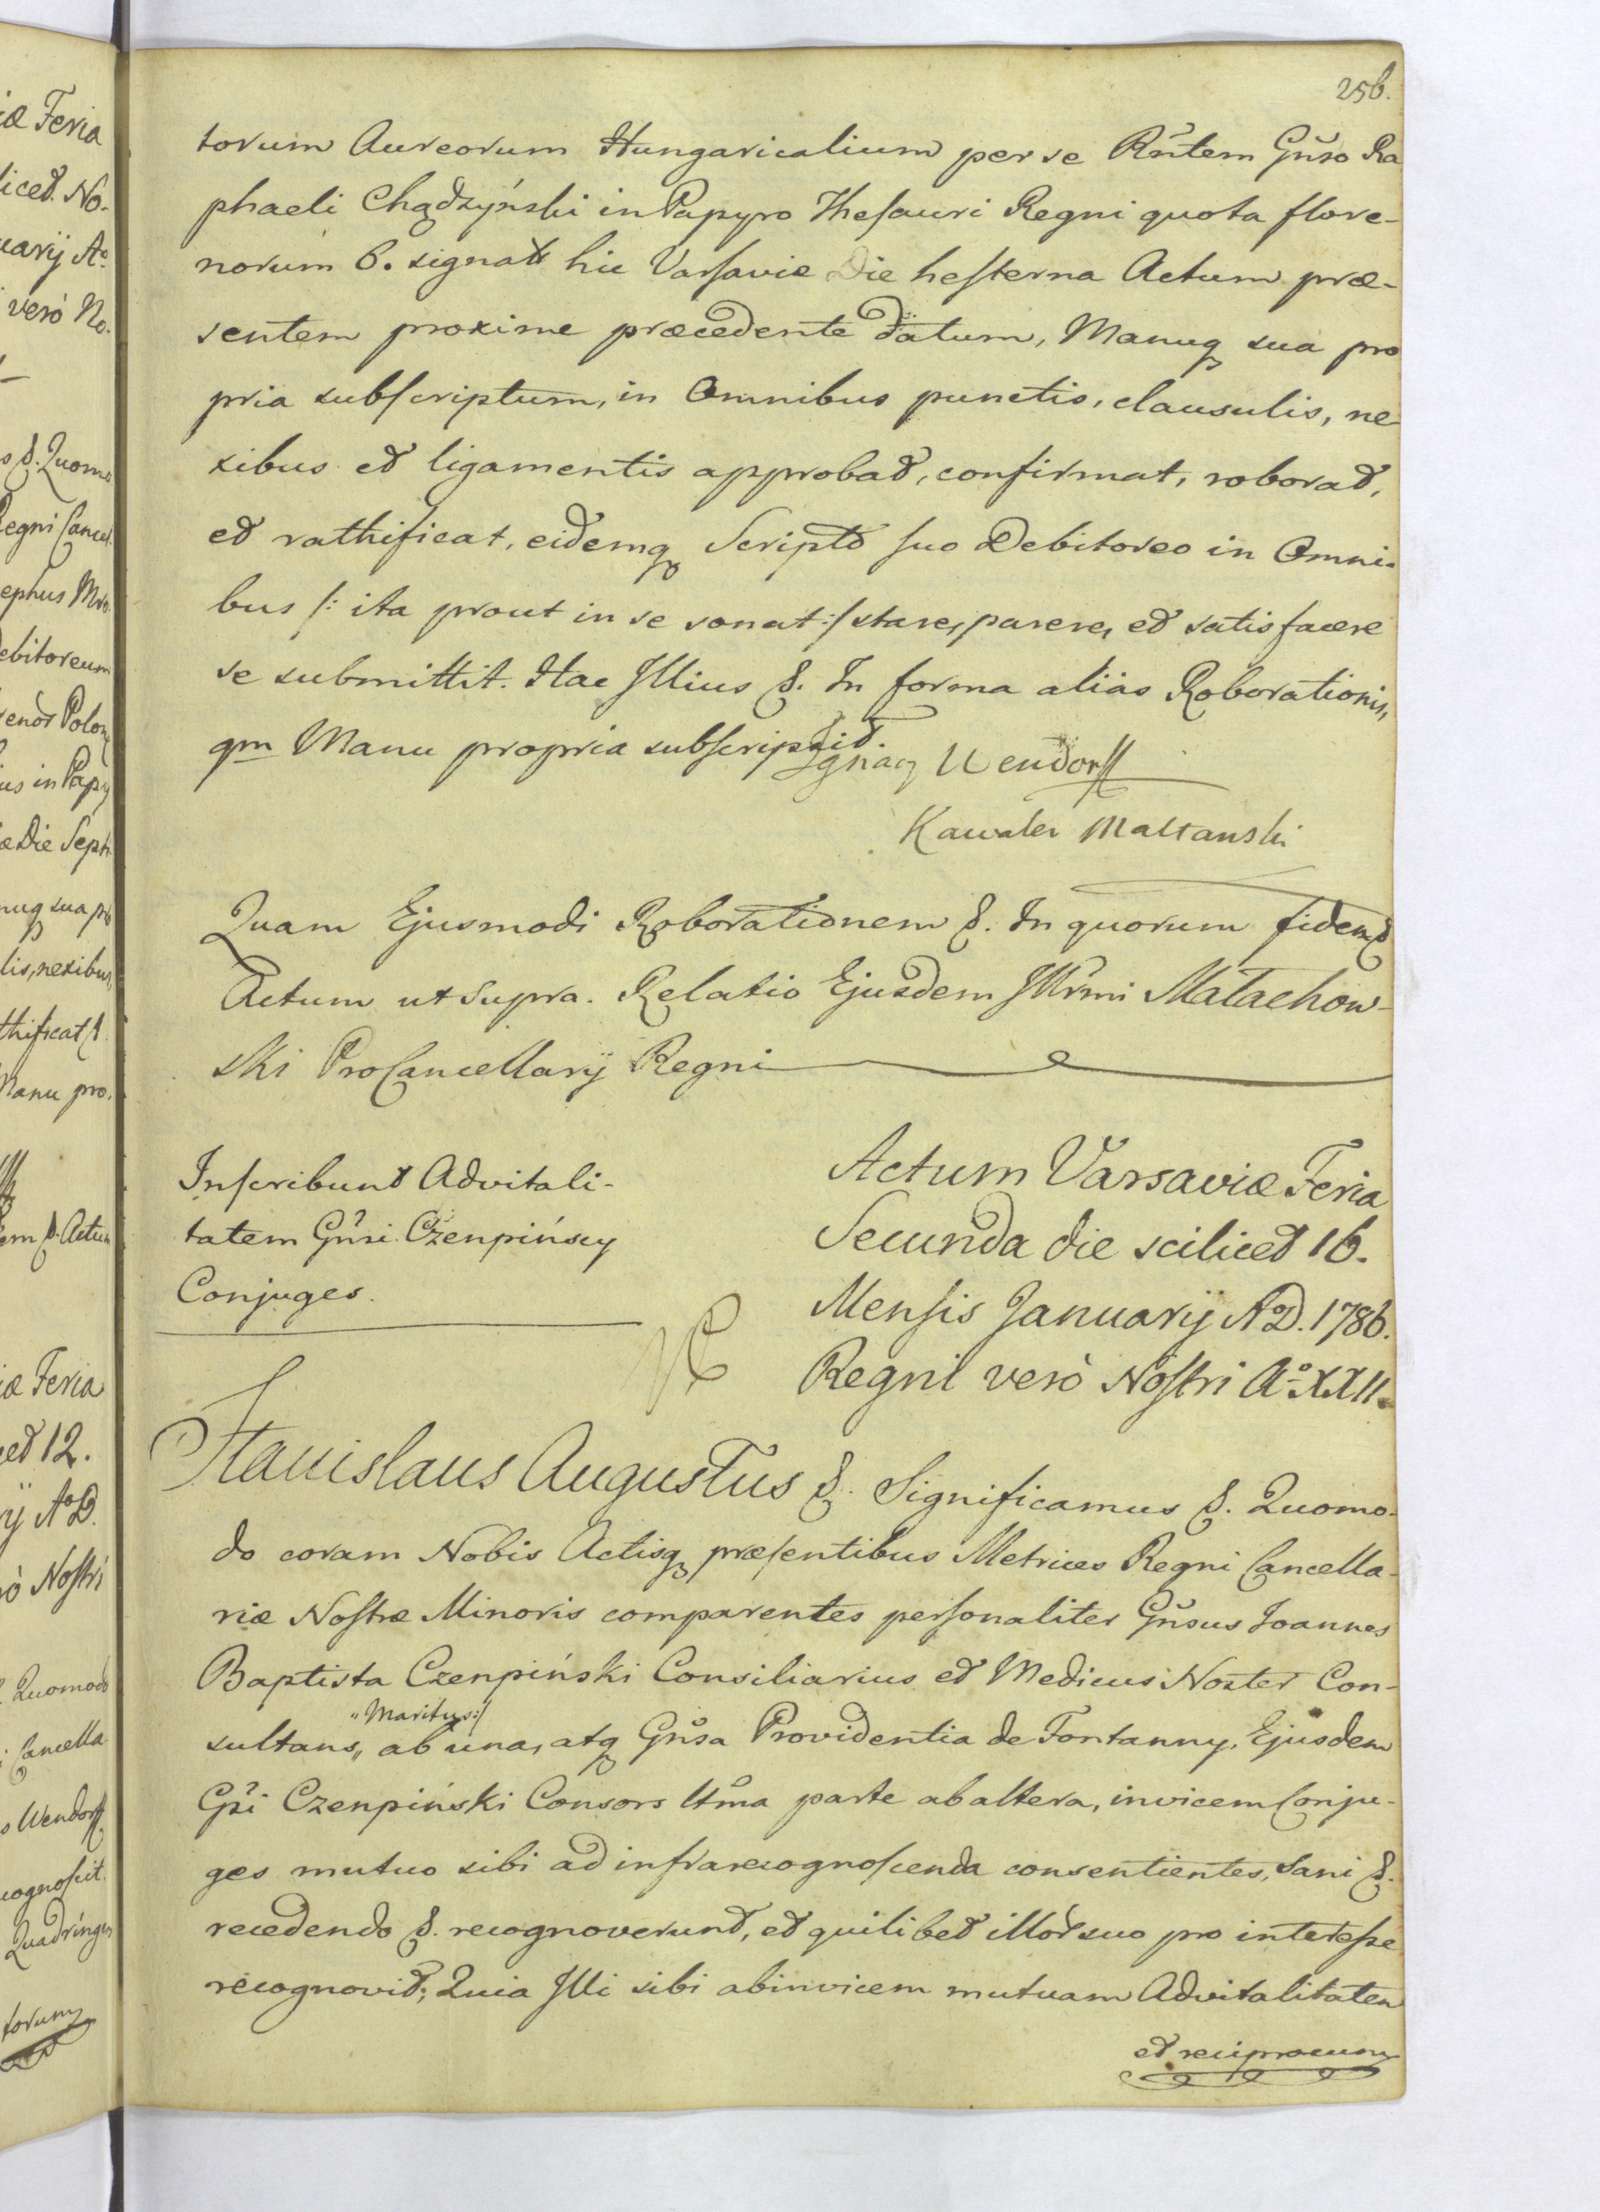 256.
torum Aureorum Hungaricalium per se Rñtem Gñso Ra
phaeli Chądzyński in Papyro Thesauri Regni quota flore-
norum 6. signato hic Varsaviæ Die hesterna Actum præ-
sentem proxime præcedente datum, Manuq sua pro
pria subscriptum, in Omnibus punctis, clausulis, ne
xibus et ligamentis approbat, confirmat, roborat,
et rathificat, eidemq Scripto suo Debitoreo in Omni-
bus /: ita prout in se sonat :/ stare, parere, et satisfacere
se submittit. Hac Illius &. In forma aliàs Roborationis,
qm Manu propria subscripsit.
Ignacy Wendorff
Kawaler Maltanski
Quam Ejusmodi Roborationem &. In quorum fidem &
Actum ut supra. Relatio Ejusdem Illrmi Małachow-
ski ProCancellarij Regni
Inscribunt Advitali-
tatem Gñsi Czenpińscy
Conjuges.
Actum Varsaviæ Feria
Secunda die scilicet 16.
Mensis Januarij A D. 1786.
Regni verò Nostri Aº XXII.
Stanislaus Augustus &. Significamus &. Quomo-
do coram Nobis Actisq præsentibus Metrices Regni Cancella-
riæ Nostræ Minoris comparentes personaliter Gñsus Joannes
Baptista Czenpiński Consiliarius et Medicus Noster Con-
„Maritus:/
sultans, ab una, atq Gñsa Providentia de Fontanny, Ejusdem
Gsi Czenpiński Consors ltma parte ab altera, invicem Conju-
ges mutuo sibi ad infrarecognoscenda consentientes, Sani &.
recedendo &. recognoverunt, et quilibet illor suo pro interesse
recognovit; Quia Illi sibi abinvicem mutuam Advitalitatem
et reciprocum